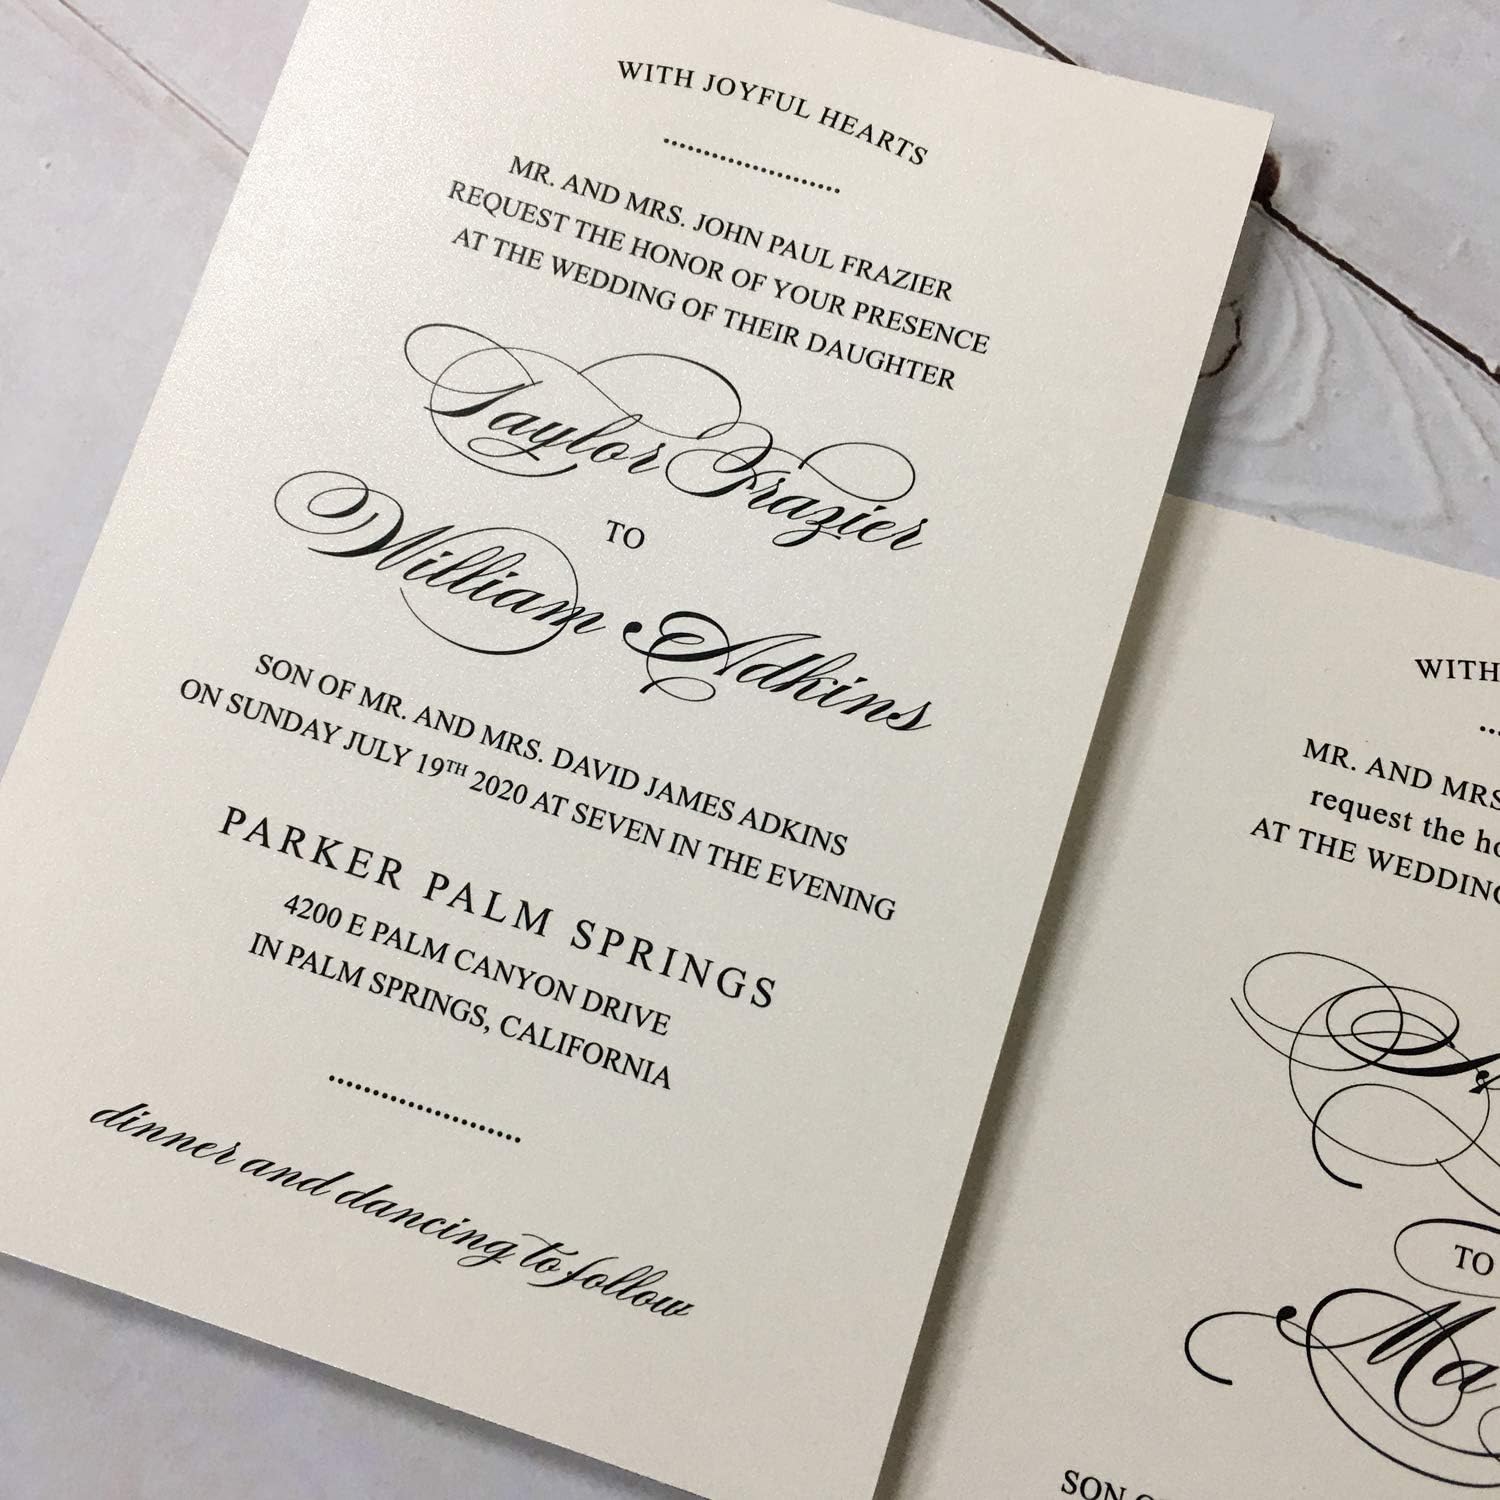 WITH JOYFUL HEARTS
MR. AND MRS. JOHN PAUL FRAZIER
REQUEST THE HONOR OF YOUR PRESENCE
AT THE WEDDING OF THEIR DAUGHTER
Taylor Frazier
TO
William Adkins
SON OF MR. AND MRS. DAVID JAMES ADKINS
ON SUNDAY JULY 19TH 2020 AT SEVEN IN THE EVENING
PARKER PALM SPRINGS
4200 E PALM CANYON DRIVE
IN PALM SPRINGS, CALIFORNIA
dinner and dancing to follow
WITH
MR. AND MRS.
request the
AT THE WEDDING
TO
SON